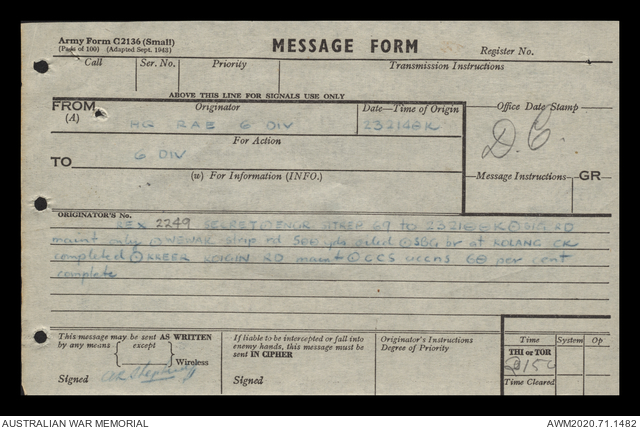 Army Form C2136 (Small)
(Pads of 100) (Adapted Sept. 1943)
MESSAGE FORM
Register No.
Call Ser. No. Priority Transmission Instructions
ABOVE THIS LINE FOR SIGNALS USE ONLY
FROM Originator Date—Time of Origin Office Date Stamp
(A) HQ RAE 6 DIV 232148K
D.C.
For Action
TO 6 DIV
(w) For Information (INFO.) Message Instructions GR
ORIGINATOR'S No.
2249 SECRET ENGR SITREP 69 to 232100K RD
maint only WEWAK strip rd 500 yds oiled SBG br at KOLANG CK
completed KREER KOIGIN RD maint CCS accns 60 per cent
complete
This message may be sent AS WRITTEN
by any means except
Wireless
Signed
If liable to be intercepted or fall into
enemy hands, this message must be
sent IN CIPHER
Signed
Originator's Instructions
Degree of Priority
Time System Op
THI or TOR
Time Cleared
AUSTRALIAN WAR MEMORIAL
AWM2020.71.1482